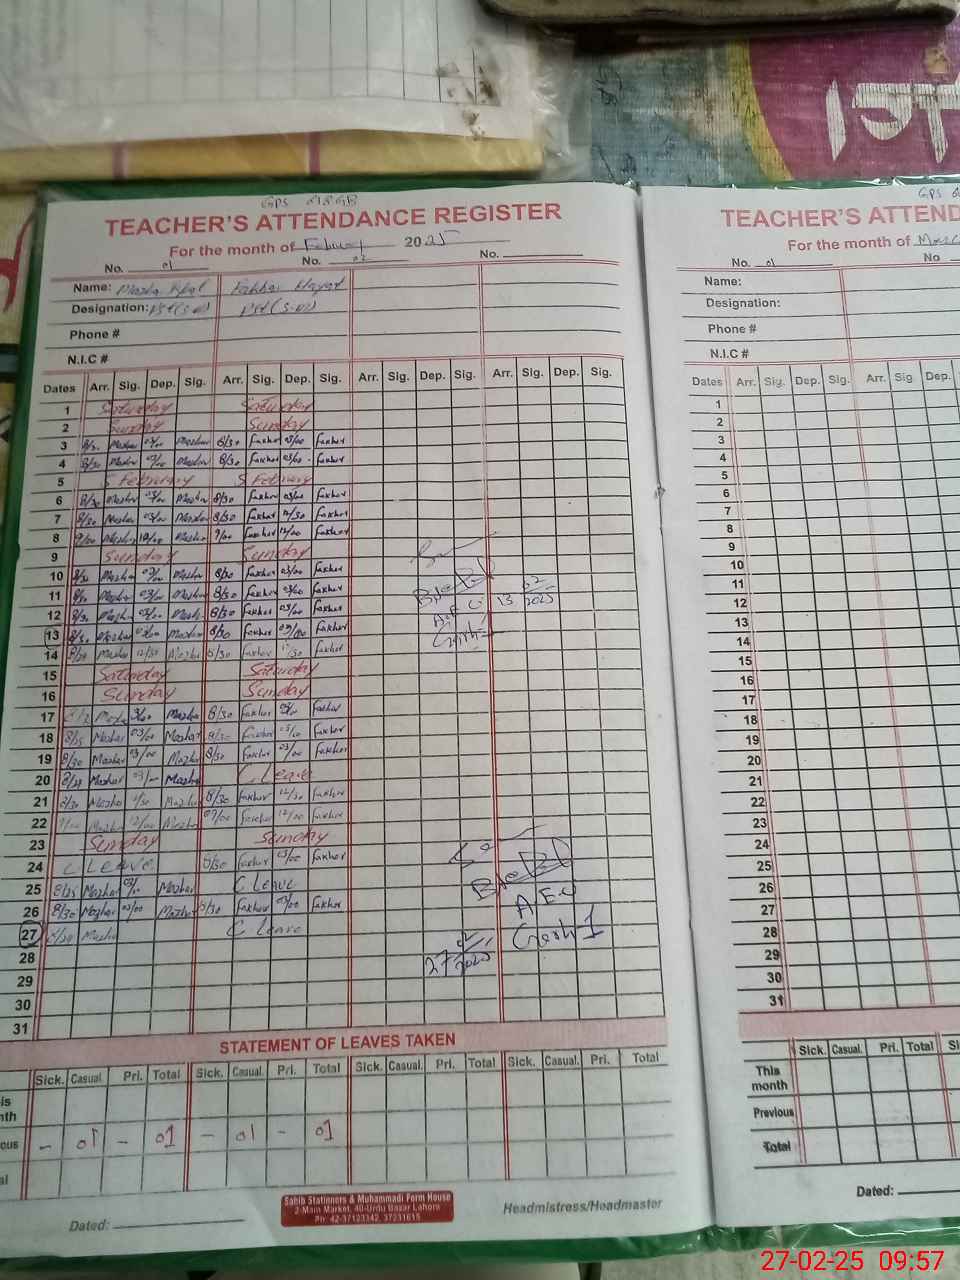 TEACHER'S ATTENDANCE REGISTER
For the month of February 2025
No. 01 No. 02 No.
Name: Fakhar Hayat
Designation:
Phone #
N.I.C #
Dates Arr. Sig. Dep. Sig. Arr. Sig. Dep. Sig. Arr. Sig. Dep. Sig. Arr. Sig. Dep. Sig.
1 Saturday Saturday
2 Sunday Sunday
3 8/30 Mazhar 03/00 Mazhar 8/30 Fakhar 03/00 Fakhar
4 8/30 Mazhar 03/00 Mazhar 8/30 Fakhar 03/00 Fakhar
5 5 February 5 February
6 8/30 Mazhar 03/00 Mazhar 8/30 Fakhar 03/00 Fakhar
7 8/30 Mazhar Mazhar 8/30 Fakhar 12/30 Fakhar
8 9/00 Mazhar 12/00 Mazhar 9/00 Fakhar 12/00 Fakhar
9 Sunday Sunday
10 8/30 Mazhar 03/00 Mazhar 8/30 Fakhar 03/00 Fakhar
11 8/30 Mazhar 03/00 Mazhar 8/30 Fakhar 03/00 Fakhar
12 8/30 Mazhar 03/00 Mazhar 8/30 Fakhar 03/00 Fakhar
13 8/30 Mazhar 03/00 Mazhar 8/30 Fakhar 03/00 Fakhar
14 8/30 Mazhar 12/30 Mazhar 8/30 Fakhar 12/30 Fakhar
15 Saturday Saturday
16 Sunday Sunday
17 Mazhar 3/00 Mazhar 8/30 Fakhar 03/00 Fakhar
18 8/25 Mazhar 03/00 Mazhar 8/30 Fakhar 03/00 Fakhar
19 8/30 Mazhar 03/00 Mazhar 8/30 Fakhar 03/00 Fakhar
20 Mazhar Mazhar C Leave
21 8/30 Mazhar Mazhar 8/30 Fakhar 12/30 Fakhar
22 9/00 Mazhar 12/00 Mazhar 09/00 Fakhar 12/00 Fakhar
23 Sunday Sunday
24 C Leave 8/30 Fakhar 03/00 Fakhar
25 8/25 Mazhar Mazhar C Leave
26 8/30 Mazhar 03/00 Mazhar 8/30 Fakhar 03/00 Fakhar
27 Mazhar C leave
28
29
30
31
13 02/2025
A.E.O
27 02/2025
STATEMENT OF LEAVES TAKEN
Sick. Casual. Pri. Total Sick. Casual. Pri. Total Sick. Casual. Pri. Total Sick. Casual. Pri. Total
- 01 - 01 - 01 - 01
Sahib Stationers & Muhammadi Form House
2-Main Market, 40-Urdu Bazar Lahore
Ph: 42-37123342, 37231615
Dated:
Headmistress/Headmaster
TEACHER'S ATTEND
For the month of
No. 01 No
Name:
Designation:
Phone #
N.I.C #
Dates Arr. Sig. Dep. Sig. Arr. Sig. Dep.
1
2
3
4
5
6
7
8
9
10
11
12
13
14
15
16
17
18
19
20
21
22
23
24
25
26
27
28
29
30
31
Sick. Casual. Pri. Total
This month
Previous
Total
Dated:
27-02-25 09:57